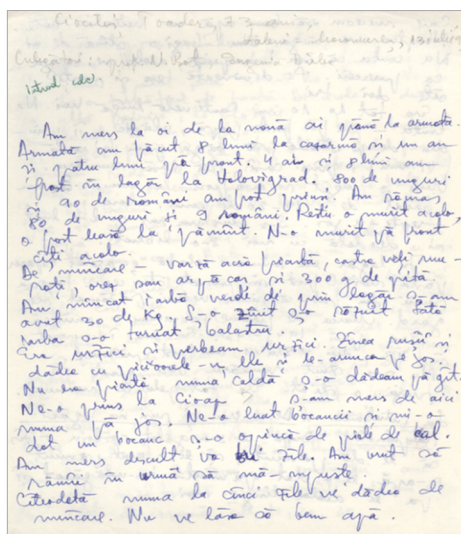 Ciocotoi Toadere, 73
Culegători:
Am mers la oi de la nouă ai pînă la armată.
Armata am făcut 8 luni la casarmă și un an
și patru luni pă front. 4 ani și 8 luni am
fost în lagăr la 800 de unguri
și 90 de români am fost prinși. Am rămas
80 de unguri și 9 români. Restu o murit acolo,
o fost la pămînt. N-o murit pă front
cîți acolo.
De mîncare – varză acră fiartă,
orez sau arpăcaș și 300 g de pită.
Am mîncat iarbă verde de prin lagăr s-am
avut 30 de Kg. S-o ș-o tătă
iarba s-o
Era urzici și fierbeam urzici. Zinea rusu și
dădea cu picioarele-n elle și le-arunca pe jos.
Nu era fiartă numa caldă ș-o dădeam pă gît.
Ne-o prins la s-am mers de aici
numa pă jos. Ne-o luat bocancii și mi-o
dat un bocanc ș-o opincă de piele de cal.
Am mers desculț zile. Am vrut să
rămîi în urmă să mă-mpuște.
Cîteodată numa la cinci zile ne dădeo de
mîncare. Nu ne lăsa să bem apă.